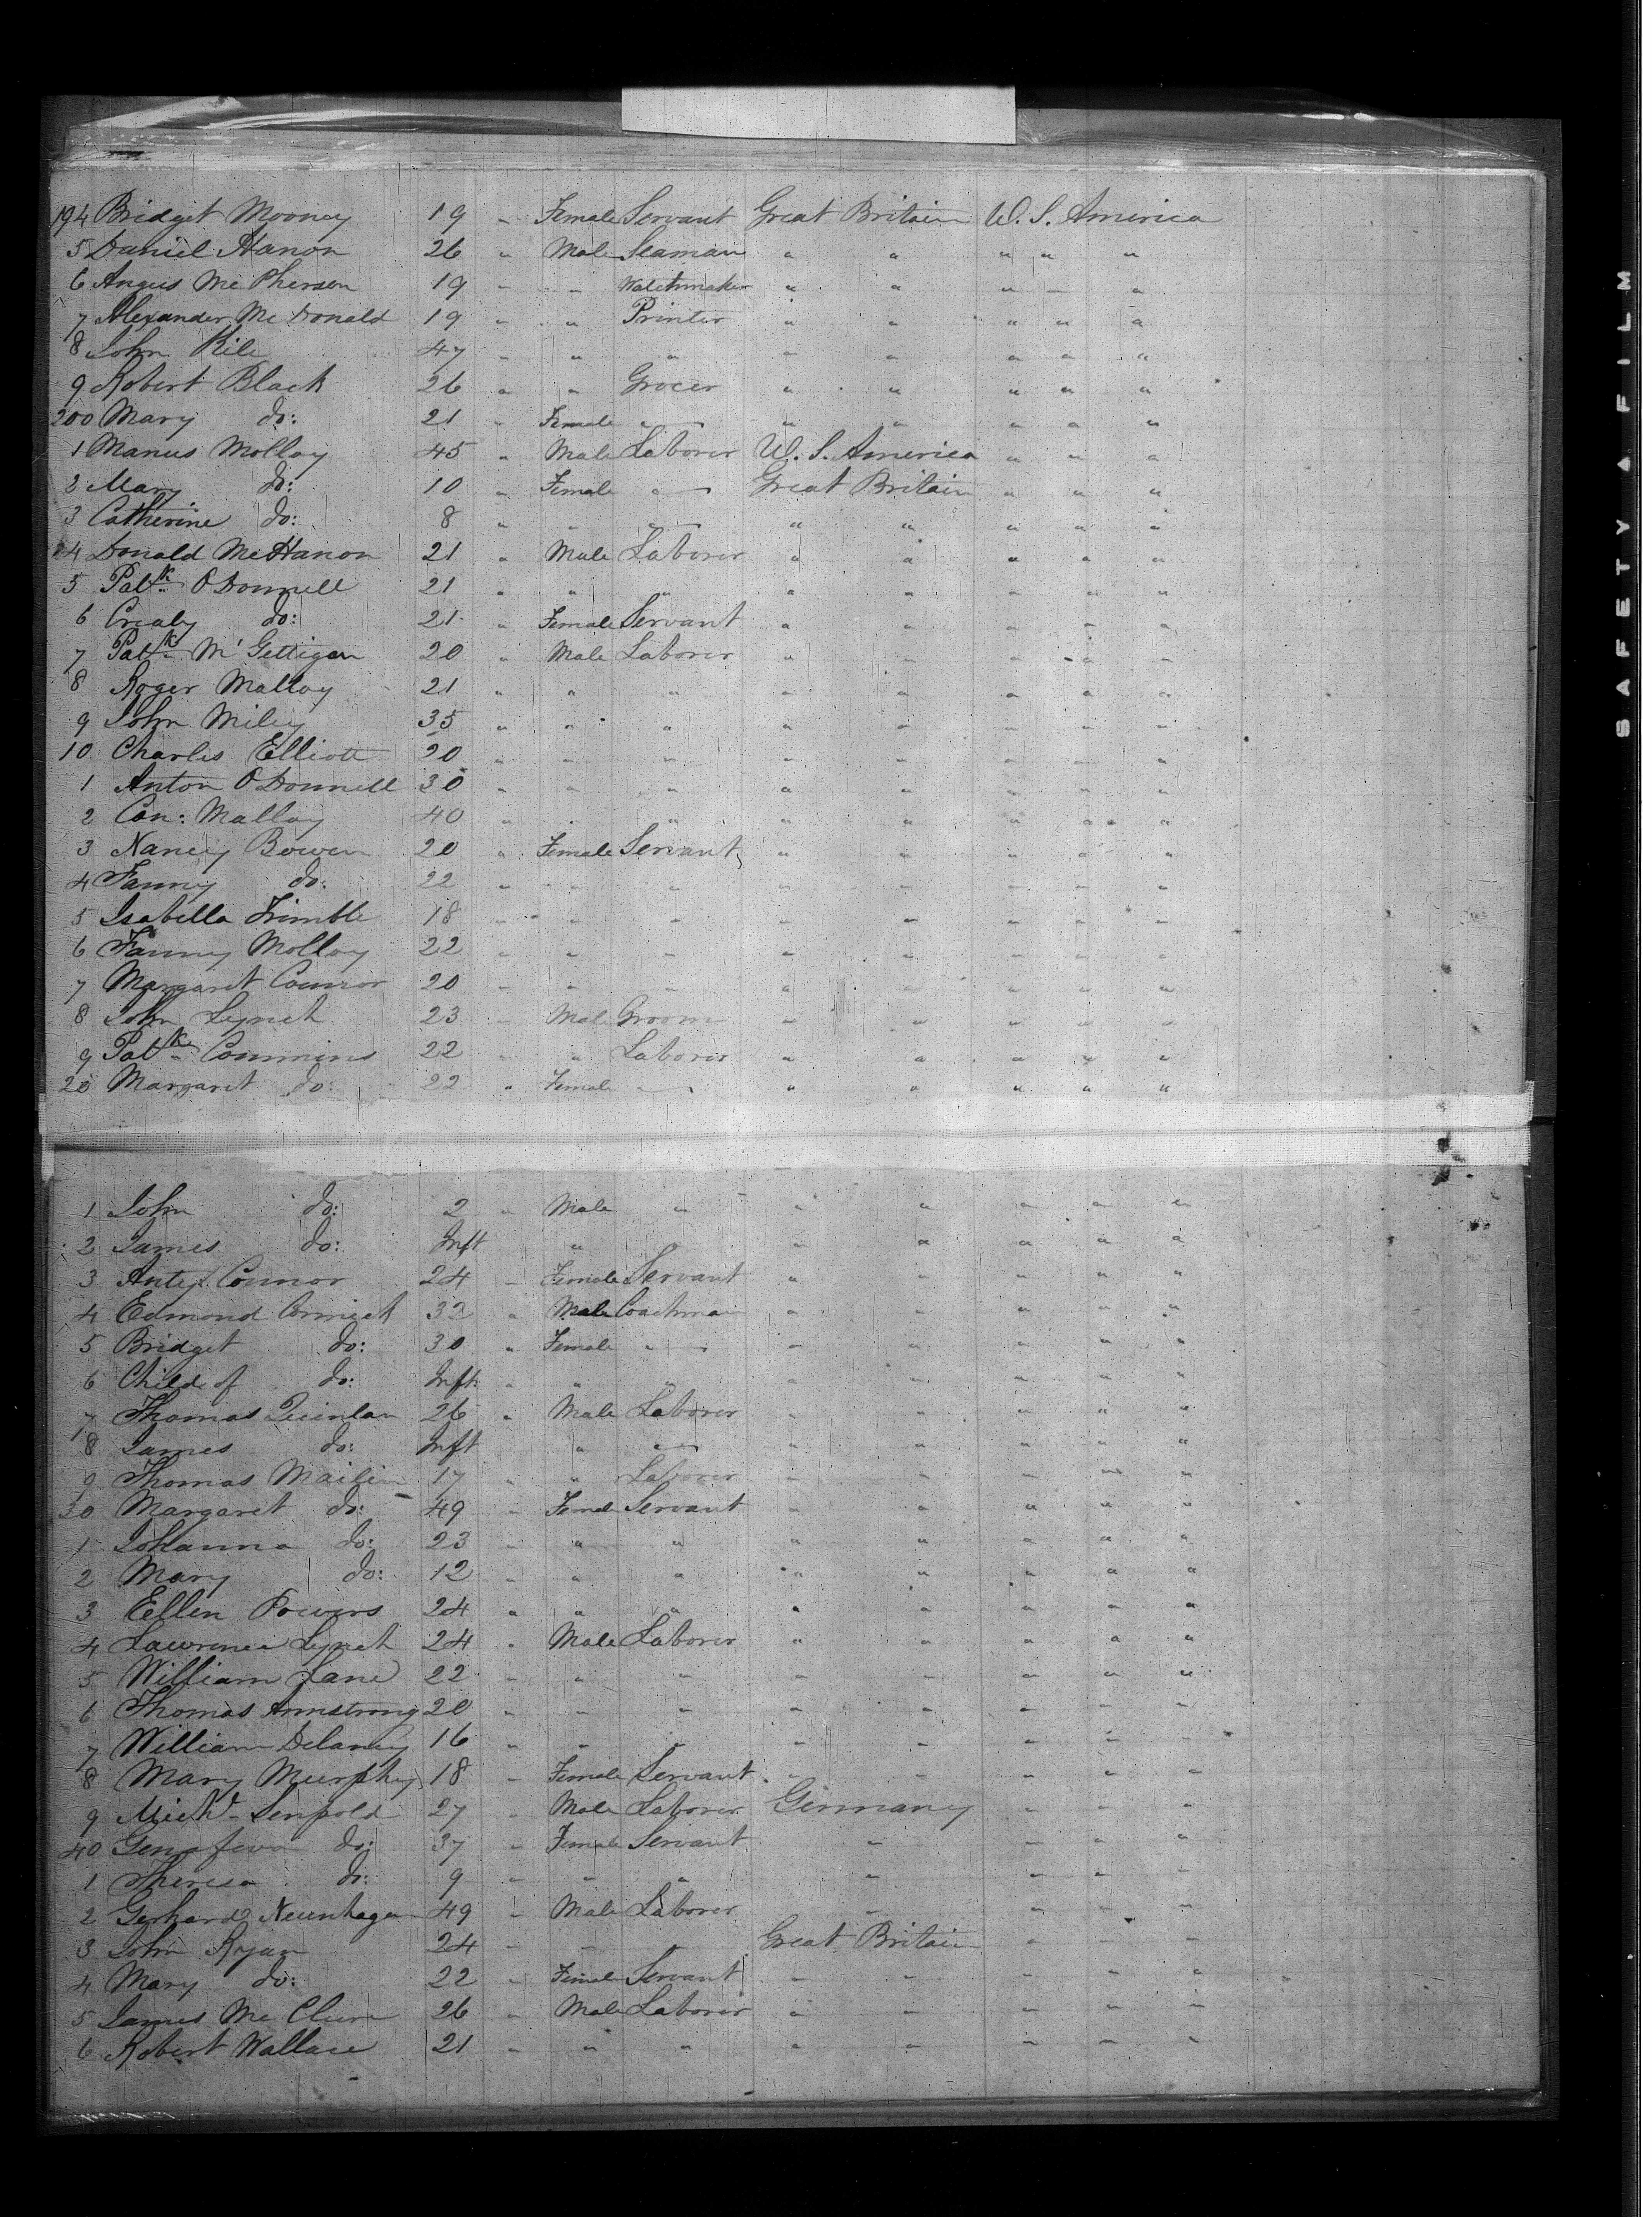 194 Bridget Mooney 19 " Female Servant Great Britain U. S. America
5 Daniel Hanon 26 " Male Seaman " " " " "
6 Angus Mc Pherson 19 " " Watchmaker " " " " "
7 Alexander Mc Donald 19 " " Printer " " " " "
8 John Kile 47 " " " " " " " "
9 Robert Black 26 " " Grocer " " " " "
200 Mary do: 21 " Female " " " " " "
1 Manus Molloy 45 " Male Laborer U. S. America " " "
2 Mary do: 10 " Female " Great Britain " " "
3 Catherine do: 8 " " " " " " " "
4 Donald McHanon 21 " Male Laborer " " " " "
5 Patk. O Donnell 21 " " " " " " " "
6 do: 21 " Female Servant " " " " "
7 Patk. M' Gettigan 20 " Male Laborer " " " " "
8 Roger Malloy 21 " " " " " " " "
9 John Miley 35 " " " " " " " "
10 Charles Elliott 20 " " " " " " " "
1 Anton O Donnell 30 " " " " " " " "
2 Con: Malloy 40 " " " " " " " "
3 Nancy Bowen 20 " Female Servant " " " " "
4 Fanny do: 22 " " " " " " " "
5 Isabella Trimble 18 " " " " " " " "
6 Fanny Molloy 22 " " " " " " " "
7 Margaret Connor 20 " " " " " " " "
8 John Lynch 23 " Male Groom " " " " "
9 Patk. Commins 22 " " Laborer " " " " "
20 Margaret do: 22 " Female " " " " " "
1 John do: 2 " Male " " " " " "
2 James do: Inft " " " " " " "
3 Connor 24 " Female Servant " " " " "
4 Edmond Cormick 32 " Male Coachman " " " " "
5 Bridget do: 30 " Female " " " " " "
6 Child of do: Inft " " " " " " " "
7 Thomas Quinlan 26 " Male Laborer " " " " "
8 James do: Inft " " " " " " "
9 Thomas 17 " " Laborer " " " " "
30 Margaret do: 49 " Female Servant " " " " "
1 Johanna do: 23 " " " " " " " "
2 Mary do: 12 " " " " " " " "
3 Ellen Powers 24 " " " " " " " "
4 Lawrence Lynch 24 " Male Laborer " " " " "
5 William Lane 22 " " " " " " " "
6 Thomas Armstrong 20 " " " " " " " "
7 William Delaney 16 " " " " " " " "
8 Mary Murphy 18 " Female Servant " " " " "
9 Michl. 27 " Male Laborer Germany " " "
40 Genofeva do: 37 " Female Servant " " " "
1 Theresa do: 9 " " " " " " "
2 Gerhard Neunhagen 49 " Male Laborer " " " "
3 John Ryan 24 " " " Great Britain " " "
4 Mary do: 22 " Female Servant " " " " "
5 James Mc Clure 26 " Male Laborer " " " " "
6 Robert Wallace 21 " " " " " " " "
SAFETY FILM